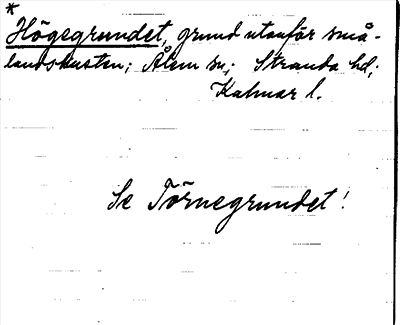 *
Högsgrundet, grund utanför små-
landskusten; Ålem sn; Stranda hd;
Kalmar l.
Se Törnegrundet!